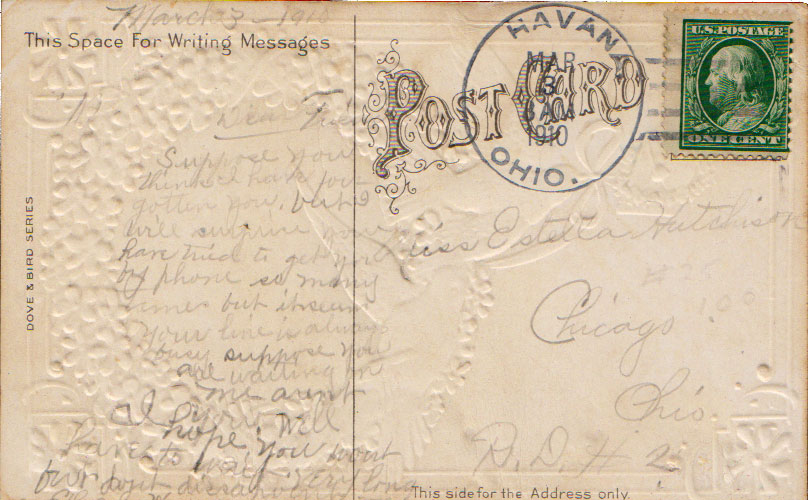 March 3 - 1910
This Space For Writing Messages
Dear Frien
Suppose you
think I have for
gotten you. but I
will surprise you
have tried to get you
by phone so many
times but it seem
your line is always
busy suppose you
are waiting on
me arent
you. Well
I hope you wont
have to wait
but dont long
DOVE & BIRD SERIES
POST CARD
HAVANA
MAR
3
1910
OHIO.
U.S. POSTAGE
ONE CENT
Miss Estella Hutchison
Chicago
Ohio.
R. D. # 2
This side for the Address only.